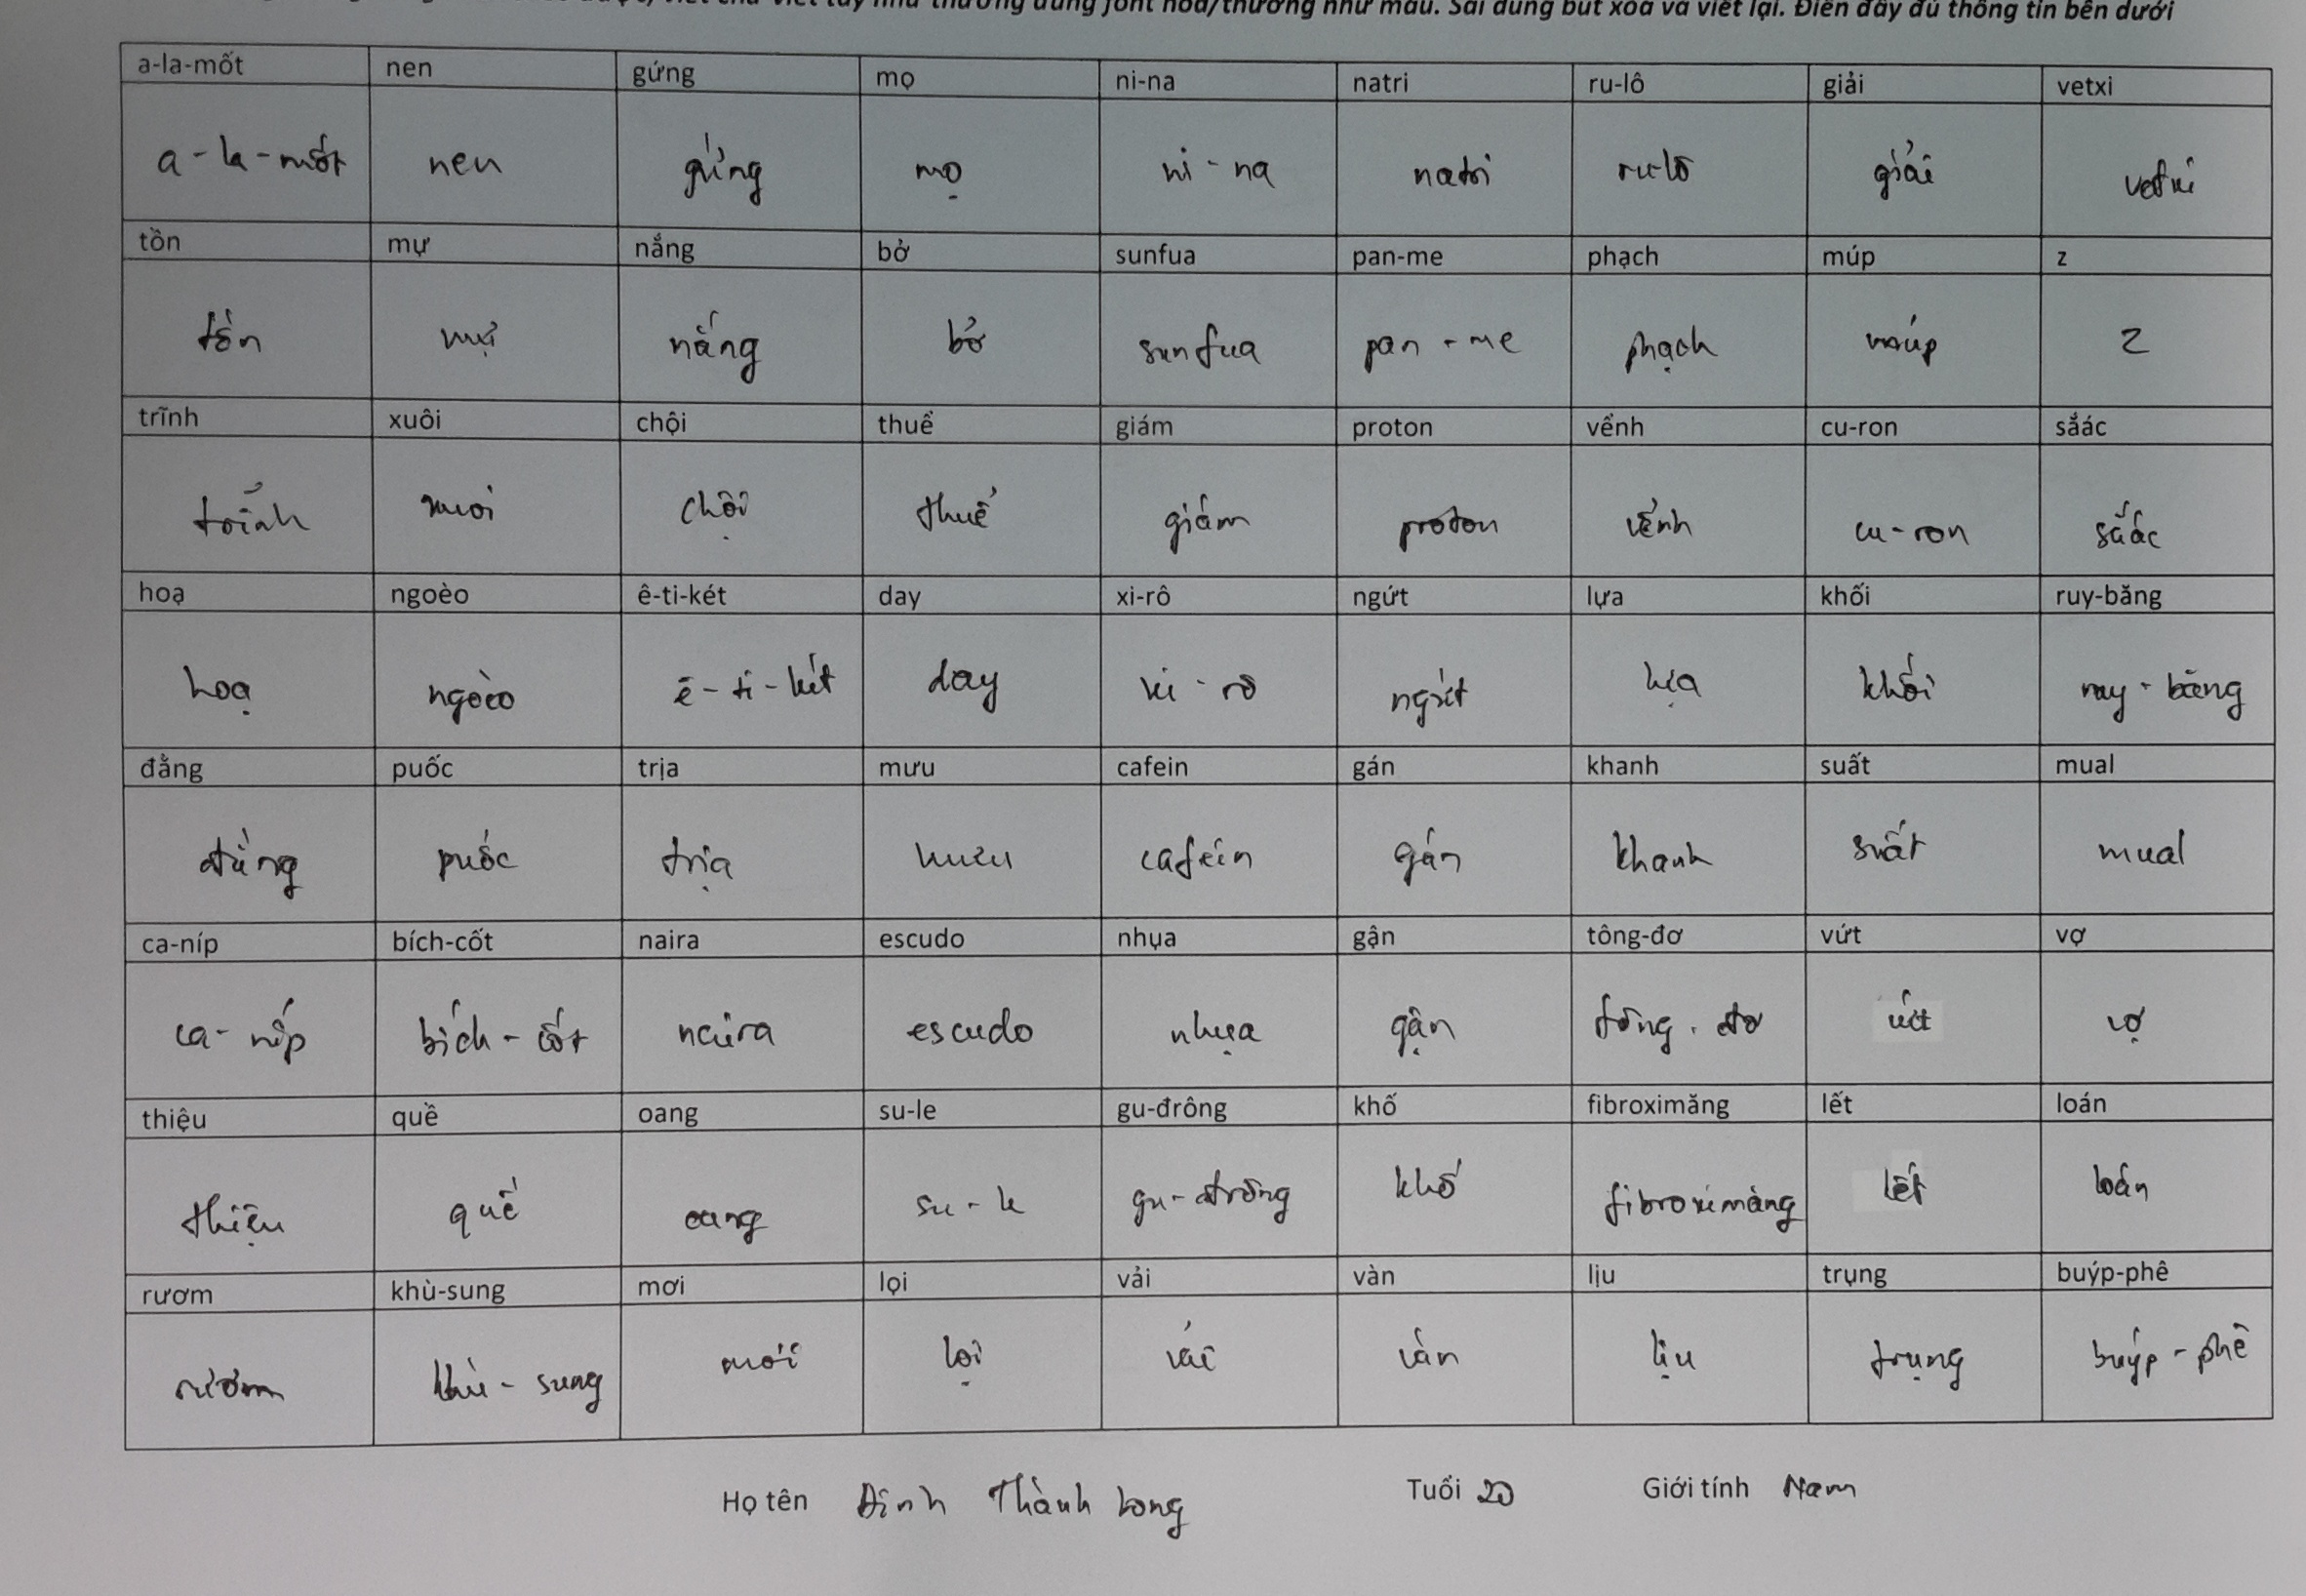 viết chữ viết tay như thường dùng font hoa/thường như mẫu. Sai dùng bút xoá và viết lại. Điền đầy đủ thông tin bên dưới
a-la-mốt nen gứng mọ ni-na natri ru-lô giải vetxi
a-la-mốt nen gứng mọ ni-na natri ru-lô giải vetxi
tồn mự nắng bở sunfua pan-me phạch múp z
tồn mự nắng bở sunfua pan-me phạch múp z
trĩnh xuôi chội thuể giám proton vểnh cu-ron sắác
trĩnh xuoi chội thuể giám proton vểnh cu-ron sắác
hoạ ngoèo ê-ti-két day xi-rô ngứt lựa khối ruy-băng
hoạ ngoèo ê-ti-két day xi-rô ngứt lựa khối ruy-băng
đằng puốc trịa mưu cafein gán khanh suất mual
đằng puốc trịa mưu cafein gán khanh suất mual
ca-níp bích-cốt naira escudo nhụa gận tông-đơ vứt vợ
ca-níp bích-cốt naira escudo nhụa gận tông-đơ vứt vợ
thiệu quề oang su-le gu-đrông khố fibroximăng lết loán
thiệu quề oang su-le gu-đrông khố fibroximăng lết loán
rươm khù-sung mơi lọi vải vàn lịu trụng buýp-phê
rươm khù-sung mơi lọi vải vàn lịu trụng buýp-phê
Họ tên Đinh Thành Long Tuổi 20 Giới tính Nam